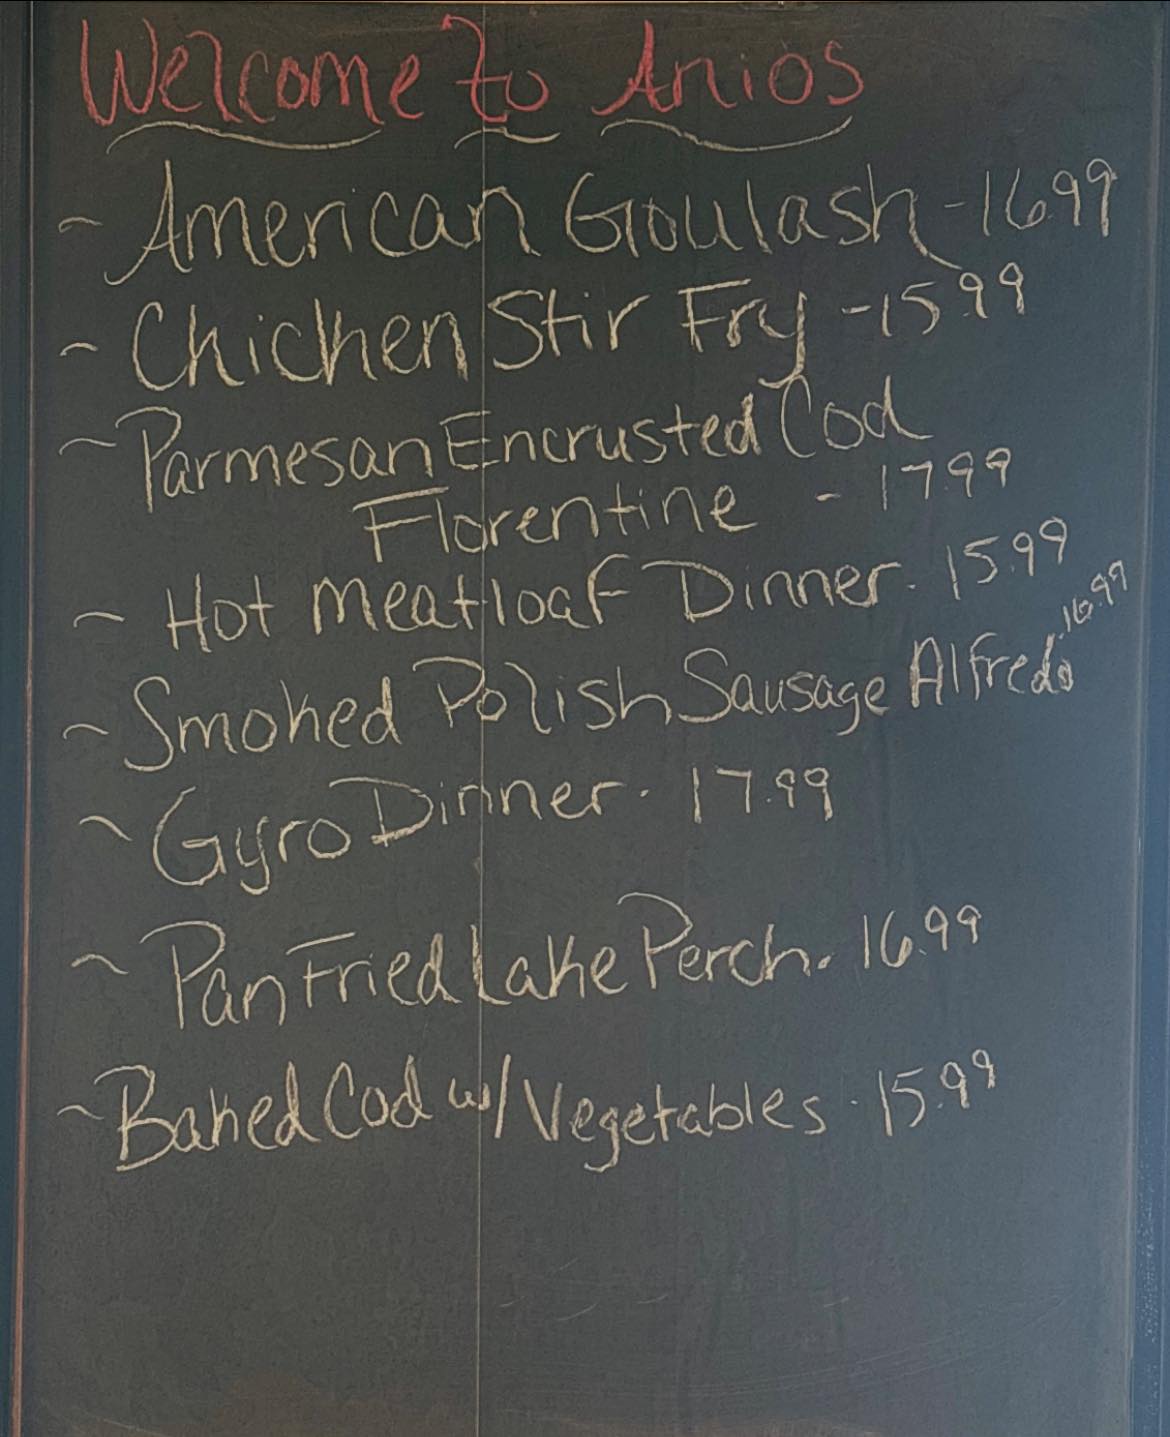 Welcome to Anios
~ American Goulash - 16.99
~ Chicken Stir Fry - 15.99
~ Parmesan Encrusted Cod
Florentine - 17.99
~ Hot Meatloaf Dinner. 15.99
~ Smoked Polish Sausage Alfredo. 16.99
~ Gyro Dinner. 17.99
~ Pan Fried Lake Perch. 16.99
~ Baked Cod w/ Vegetables. 15.99